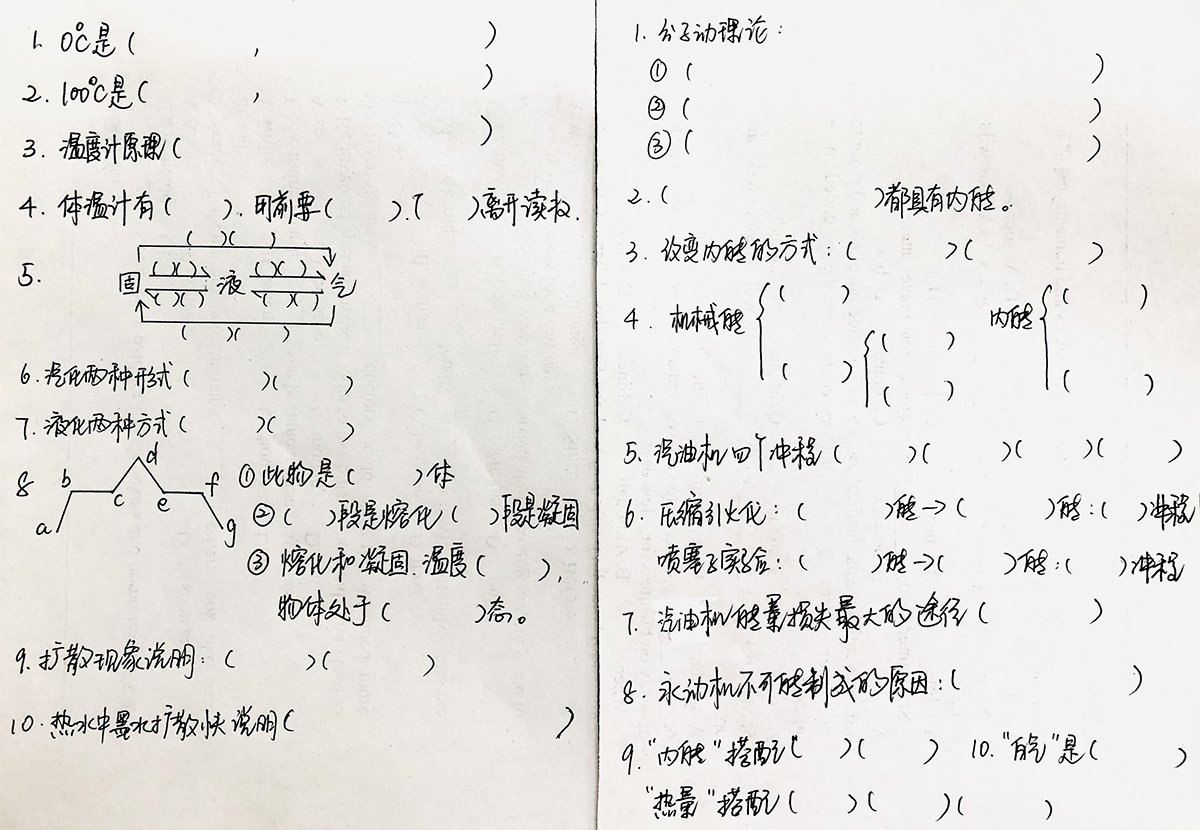 1. 0℃是(        ,        )
2. 100℃是(        ,        )
3. 温度计原理(        )
4. 体温计有(    ). 用前要(    ).(    )离开读数.
(  )(  )
5. 固 (  )(  ) 液 (  )(  ) 气
(  )(  ) (  )(  )
(  )(  )
6. 汽化两种形式(    )(    )
7. 液化两种方式(    )(    )
8 a b c d e f g ①此物是(    )体
②(    )段是熔化(    )段是凝固
③ 熔化和凝固.温度(    ),
物体处于(    )态。
9. 扩散现象说明:(    )(    )
10. 热水中墨水扩散快说明(        )
1. 分子动理论:
①(        )
②(        )
③(        )
2.(        )都具有内能。
3. 改变内能的方式:(    )(    )
4. 机械能 {(    ) (    ) {(    ) (    ) 内能 {(    ) (    )
5. 汽油机四个冲程(    )(    )(    )(    )
6. 压缩引火仪:(    )能→(    )能:(    )冲程
喷塞子实验:(    )能→(    )能:(    )冲程
7. 汽油机能量损失最大的途径(    )
8. 永动机不可能制成的原因:(        )
9. "内能"搭配(    )(    ) 10. "白气"是(    )
"热量"搭配(    )(    )(    )